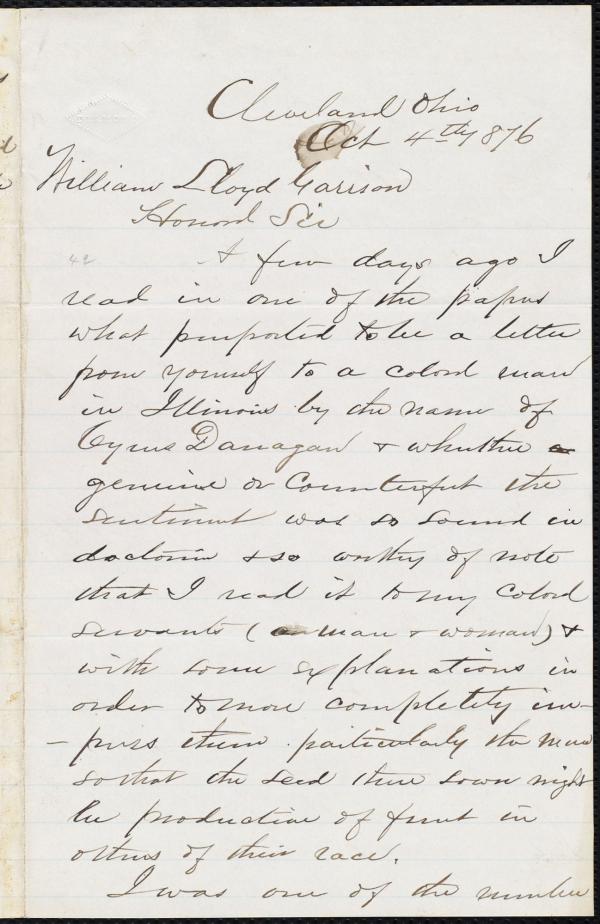 Cleveland Ohio
Oct 4th 1876
William Lloyd Garison
Honord Sir
42
A few days ago I
read in one of the papers
what purported to be a letter
from yourself to a colord man
in Illinois by the name of
Cyrus Danagan & whether a
genuine or Counterfut the
sentiment was so sound in
doctorin & so worthy of note
that I read it to my Colord
servants (a man & woman) &
with some explanations in
order to more completely im-
-press them particularly the man
so that the seed there sown might
be productive of fruit in
others of their race.
I was one of the number